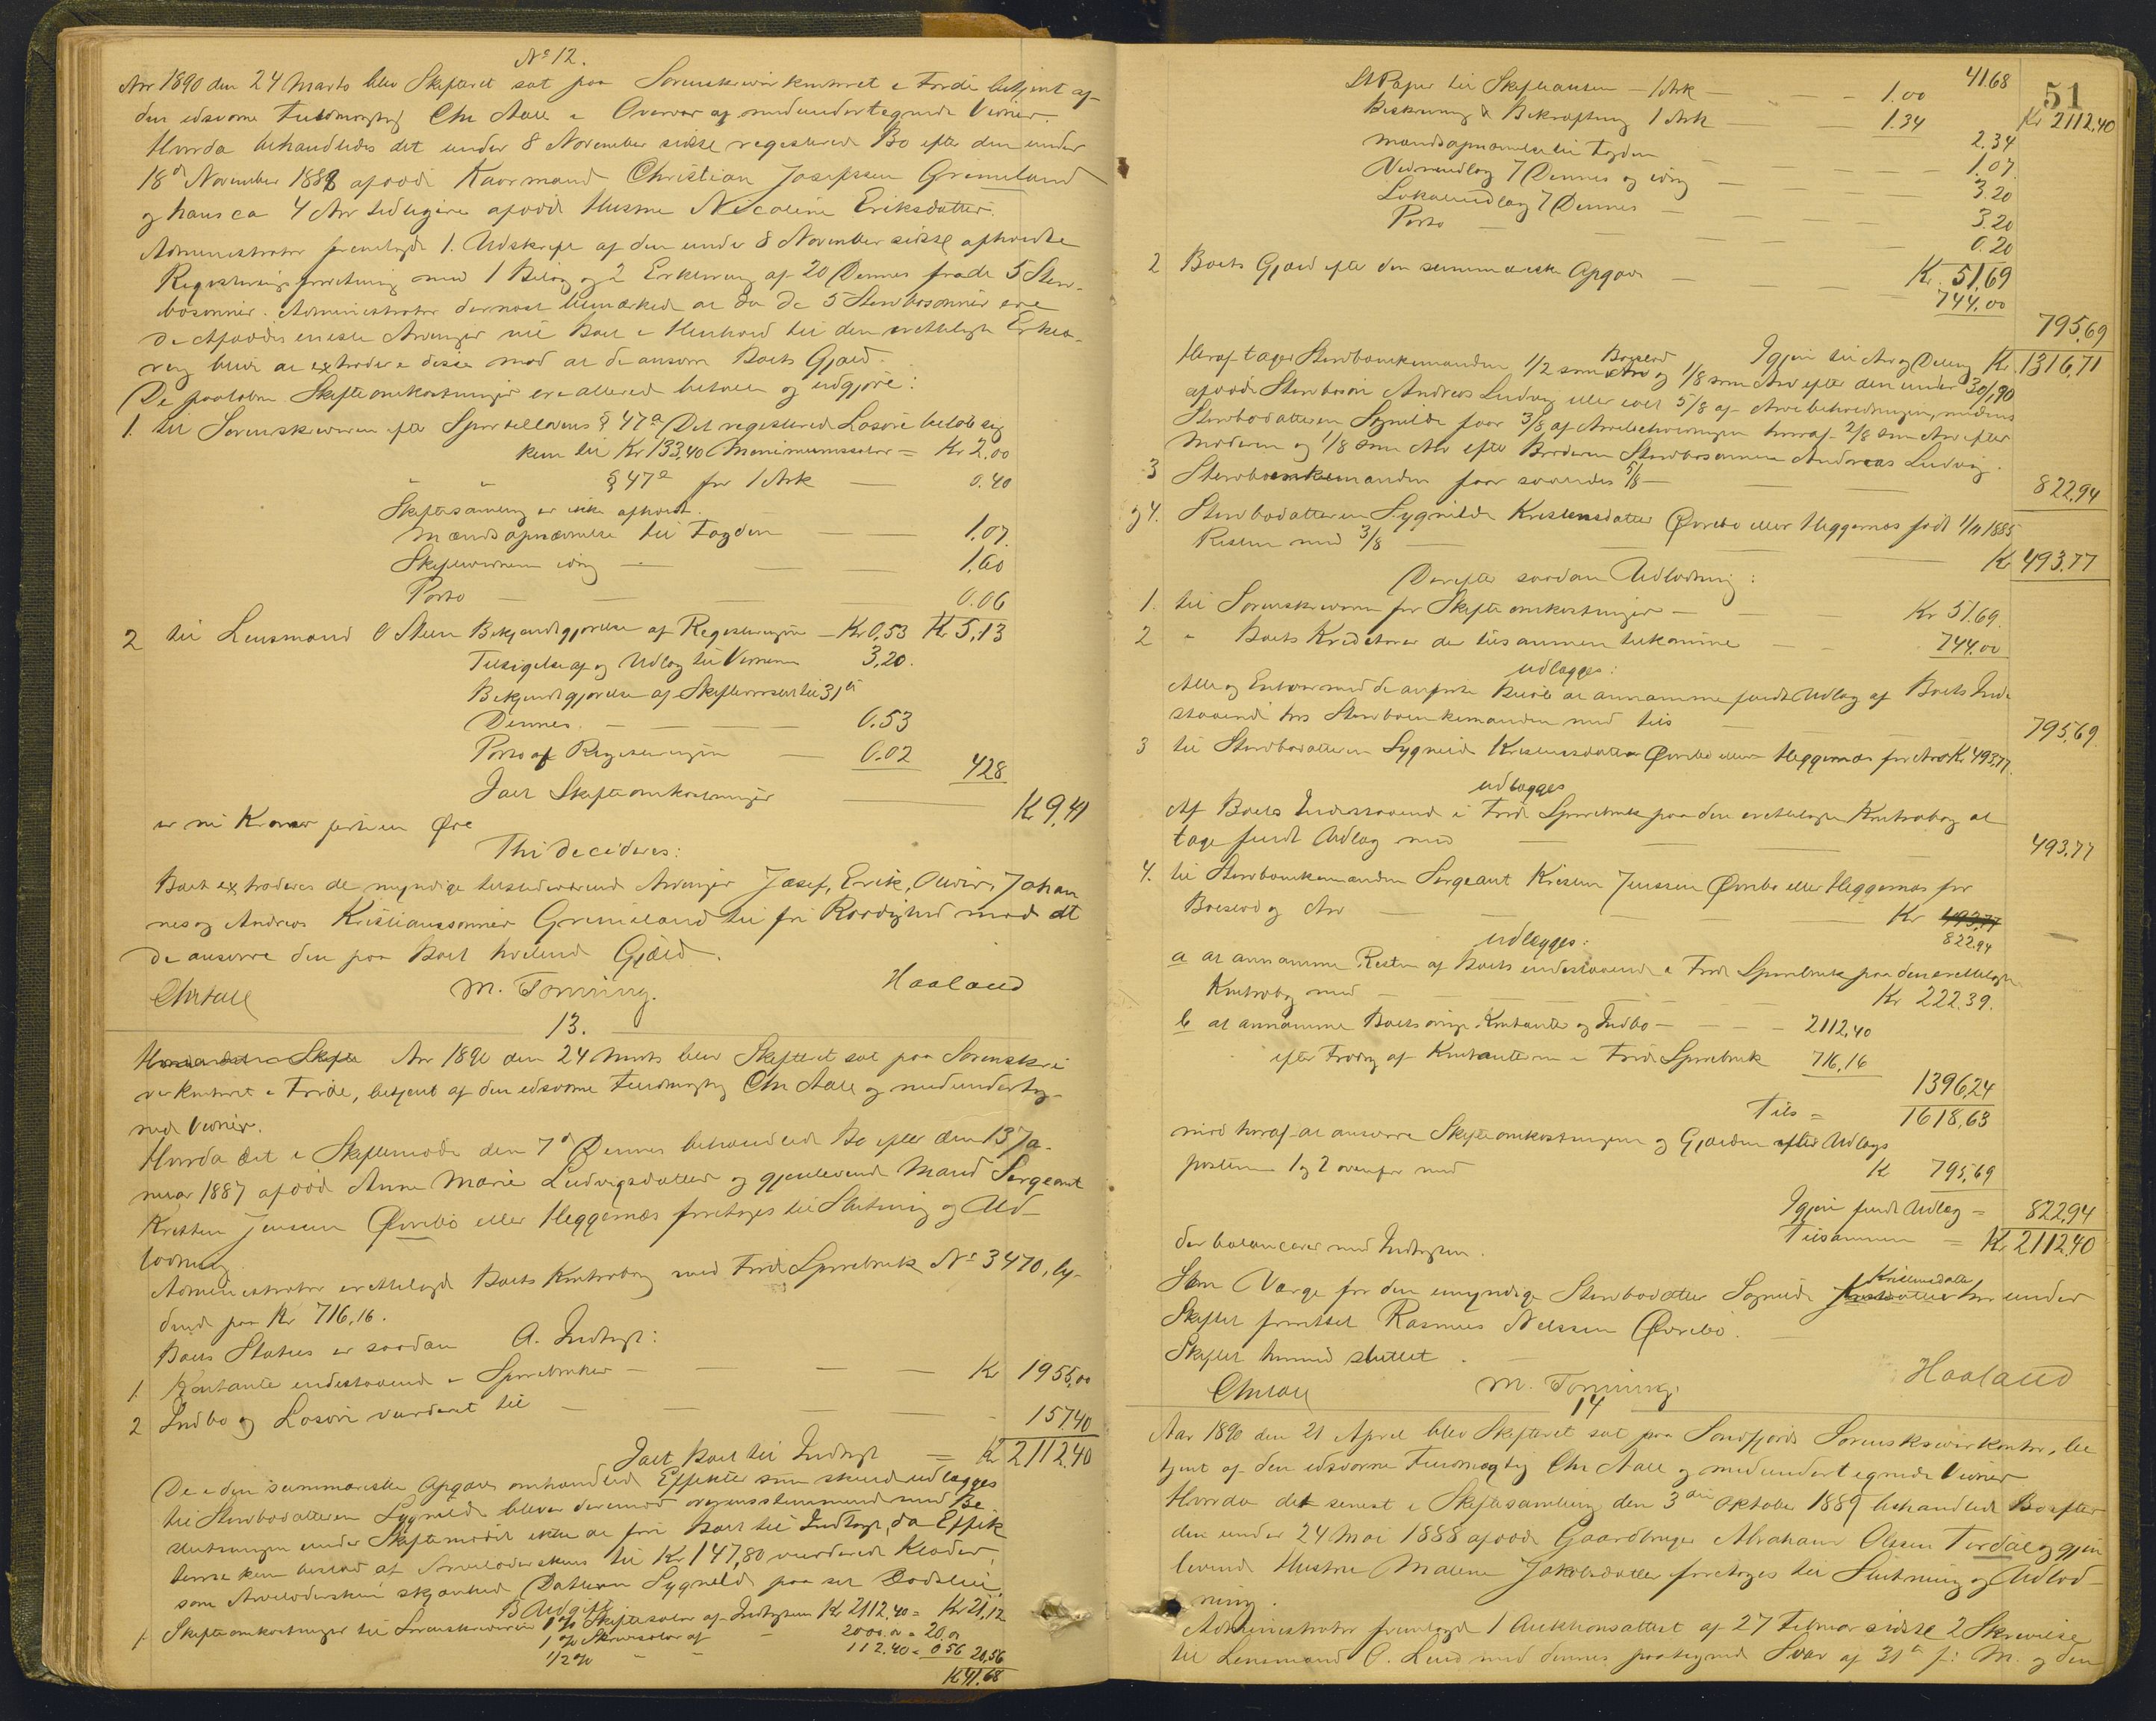 No 12.
Aar 1890 den 24 Marts blev Skifteret sat paa Sorenskriverkontoret i Førde betjent af
den edsvorne Fuldmægtig Chr Aall i Overvær af medundertegnede Vidner.
Hvorda behandledes det under 8 November sidste registrerede Bo efter den under
18de November 1888 afdøde Kaarmand Christian Josefssen Grimeland
og hans ca 4 Aar tidligere afdøde Hustru Nicoline Eriksdatter.
Administrator fremlagde 1. Udskrift af den under 8 November sidstl afholdte
Registreringsforretning med 1 Bilag og 2 Erklæring af 20 Dennes fra de 5 Sterv-
bosønner. Administrator dernæst bemærkede at da de 5 Stervbosønner ere
de Afdødes eneste Arvinger vil Boet i Henhold til den irettelagte Erklæ-
ring blive at extradere disse mod at de ansvare Boets Gjæld.
De paaløbne Skifteomkostninger ere allerede betalte og udgjøre:
1. til Sorenskriveren efter Sportellovens § 47a Det registrerede Løsøre beløb sig
kun til Kr 133,40 Minimumssalær = Kr 2.00
" " § 47e for 1 Ark — 0.40
Skiftesamling er ikke afholdt.
Mændsopnævnelse til Fogden — 1.07.
Skiftevidnerne — 1,60
Porto — 0.06
2 til Lensmand O Steen Bekjendtgjørelse af Registreringen — Kr 0,53 Kr 5,13
Tilsigelse af og Udlæg til Vidnerne 3,20.
Bekjendtgjørelse af Skiftevæsenet til 31te
Dennes. — 0.53
Porto af Registreringen — 0.02 428
Ialt Skifteomkostninger — Kr 9,41
er ni Kroner firti en Øre
Thi decideres:
Boet extraderes de myndige tilstedeværende Arvinger Josef, Erik, Oliver, Johan
nes og Andreas Kristianssønner Grimeland til fri Raadighed mod at
de ansvare den paa Boet hvilende Gjæld.
Chr Aall M. Tonning. Haaland
13.
Aar 1890 den 24 Marts blev Skifteret sat paa Sorenskri
verkontoret i Førde, betjent af den edsvorne Fuldmægtig Chr Aall og medunderteg-
nede Vidner.
Hvorda det i Skiftemøde den 7de Dennes behandlede Bo efter den 13 Ja-
nuar 1887 afdøde Anne Marie Ludvigsdatter og gjenlevende Mand Sergeant
Kristen Jenssen Øvrebø eller Heggernæs foretoges til Slutning og Ud-
lodning
Administrator irettelagde Boets Kontrabog med Førde Sparebank No 3470, ly-
dende paa Kr 716,16.
Boets Status er saadan A. Indtægt:
1. Kontanter indestaaende i Sparebanker — Kr 1955,00
2 Indbo og Løsøre vurderet til — 157,40
Ialt Boet til Indtægt = Kr 2112.40
De i den summariske Opgave omhandlede Effekter som skulde udlægges
til Stervbodatteren Sygnilde bliver derimod overensstemmende med Be
slutningen under Skiftemødet ikke at føre Boet til Indtægt, da Effek
terne kun bestod af Arveladerskens til Kr 147,80 vurderede Klæder,
som Arveladersken skjænkede Datteren Sygnilde paa sit Dødsleie.
B Udgift
1 Skifteomkostninger til Sorenskriveren 1% Skiftesalær af Indtægten Kr 2112,40 = Kr 21,12
1% Skrivesalær af - 2000.00 = 20,00
1/2% - - 112.40 = 0 56 20,56
Kr 41.68
51
St Papir til Skifteausen — 1 Ark — 1.00 4168 Kr 2112,40
Beskrivning & Bekræftning 1 Ark — 1.34
2.34
Mændsopnævnelse til Fogden — 1.07
Vidneudlæg 7 Dennes og idag — 3.20
Lokaleudlæg 7 Dennes — 3.20
Porto — 0.20
Kr. 51,69
2 Boets Gjæld efter den summariske Opgave — 744.00
795,69
Igjen til Arv og Deling Kr 1316,71
Heraf tager Stervboenkemanden 1/2 som Boeslod og 1/8 som Arv efter den under 30/1 90
afdøde Stervbosøn Andreas Ludvig eller ialt 5/8 af Arvebeholdningen, medens
Stervbodatteren Sygnilde faar 3/8 af Arvebeholdningen hvoraf 2/8 som Arv efter
Moderen og 1/8 som Arv efter Broderen Stervbosønnen Andreas Ludvig.
3 Stervboenkemanden faar saaledes 5/8 — 822,94
og 4. Stervbodatteren Sygnilde Kristensdatter Øvrebø eller Heggernæs født 1/11 1885
Resten med 3/8 — Kr 493,77
Derefter saadan Udlodning:
1. til Sorenskriveren for Skifteomkostninger — Kr 51.69.
2 " Boets Kreditorer der tilsammen tilkomme — 744.00
udlægges:
Alle og Enhver med de anførte Beløb at annamme fuldt Udlæg af Boets Inde
staaende hos Stervboenkemanden med tils 795,69.
3 til Stervbodatteren Sygnild Kristensdatter Øvrebø eller Heggernæs for Arv Kr 493,77.
udlægges
Af Boets Indestaaende i Førde Sparebank paa den irettelagte Kontrabog at
tage fuldt Udlæg med — 493,77
4. til Stervboenkemanden Sergeant Kristen Jenssen Øvrebø eller Heggernæs for
Boeslod og Arv — Kr 493,77
822.94
udlægges:
a at annamme Resten af Boets indestaaende i Førde Sparebank paa den irettelagte
Kontrabog med — Kr 222.39.
b at annamme Boets øvrige Kontanter og Indbo — 2112,40
efter Fradrag af Kontanterne i Førde Sparebank 716,16
1396,24
Tils = 1618,63
mod heraf at ansvare Skifteomkostningerne og Gjælden efter Udlægs
posterne 1 og 2 ovenfor med Kr 795,69
Igjen fuldt Udlæg = 822,94
der balancerer med Indtægten. Tilsammen = Kr 2112,40
Som Værge for den umyndige Stervbodatter Sygnilde Kristensdatter her under
Skiftet foreslaaet Rasmus Nelssen Øvrebø.
Skiftet hermed sluttet.
Chr Aall M. Tonning. Haaland
14
Aar 1890 den 21 April blev Skifteret sat paa Søndfjords Sorenskriverkontor, be
tjent af den edsvorne Fuldmægtig Chr Aall og medundertegnede Vidner
Hvorda det senest i Skiftesamling den 3die Oktober 1889 behandlede Bo efter
den under 24 Mai 1888 afdøde Gaardbruger Abraham Olssen Førdal og gjen
levende Hustru Malene Jakobsdatter foretoges til Slutning og Udlod-
ning.
Administrator fremlagde 1 Auktionsattest af 27 Februar sidstl 2 Skrivelse
til Lensmand O. Lund med dennes paategnede Svar af 31te f: M. og den